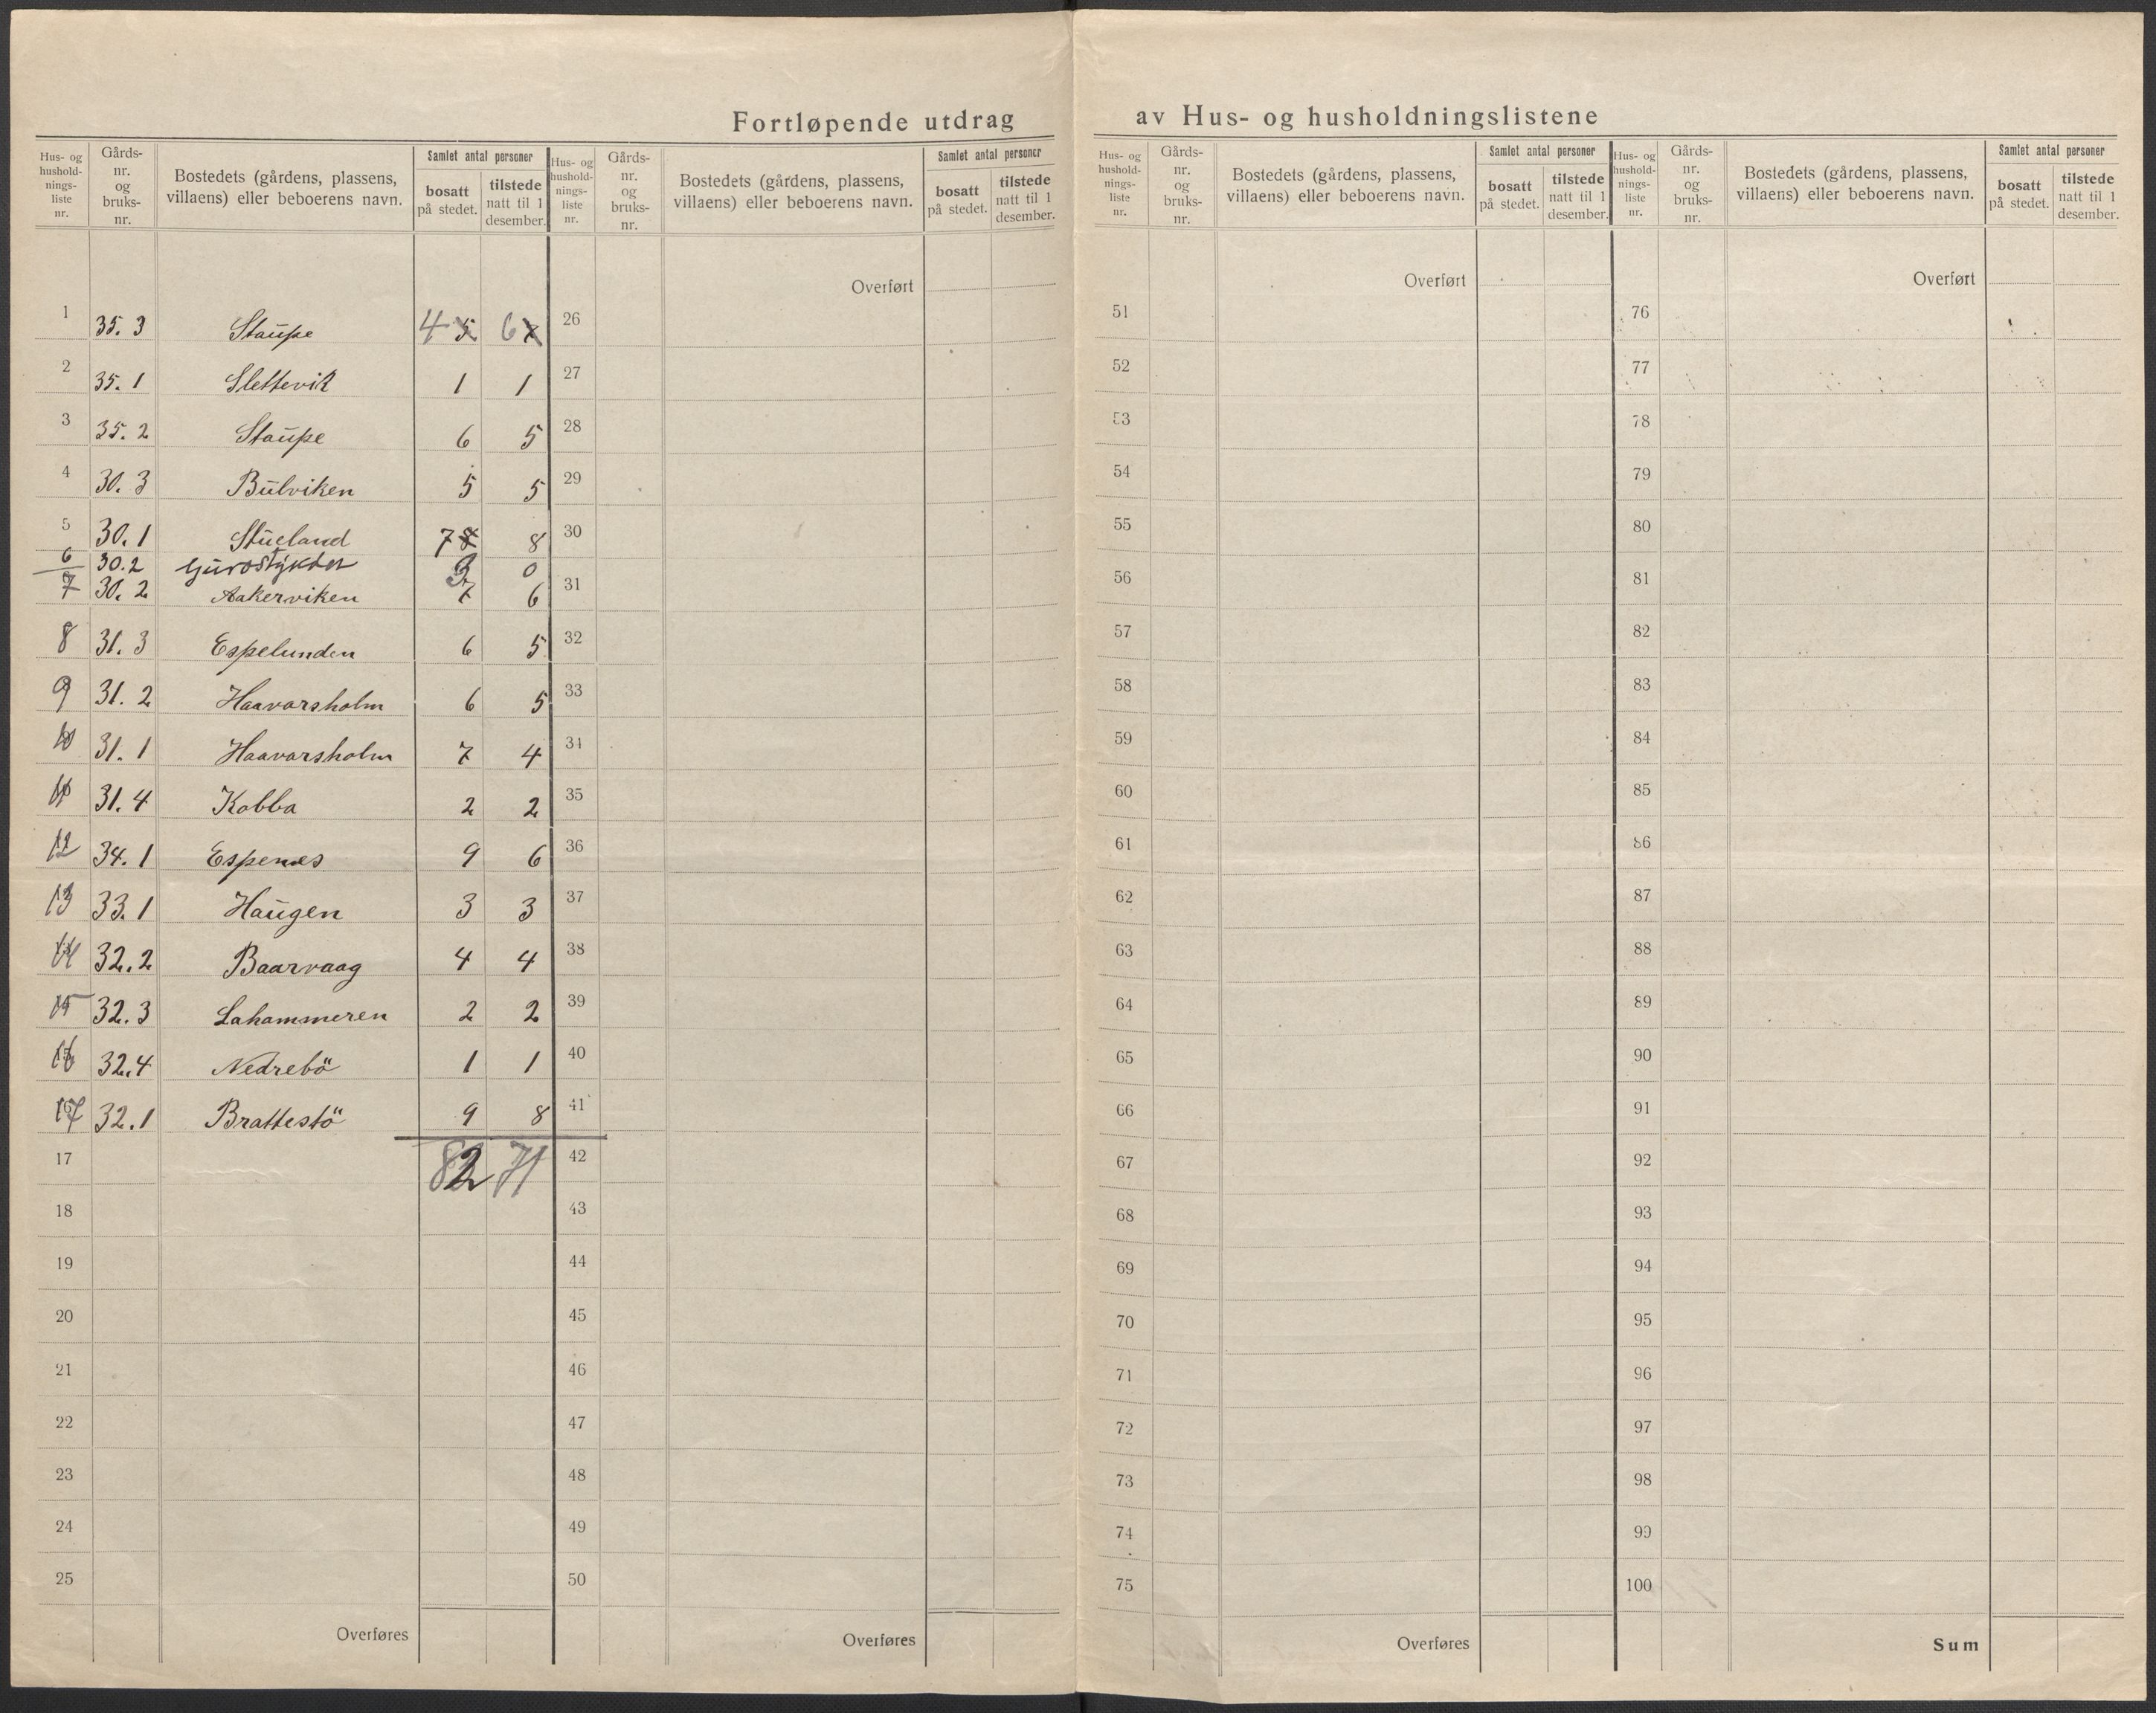 Fortløpende utdrag av Hus- og husholdningslistene
Hus- og hushold-nings-liste nr. Gårds-nr. og bruks-nr. Bostedets (gårdens, plassens, villaens) eller beboerens navn. Samlet antal personer bosatt på stedet. tilstede natt til 1 desember.
1 35. 3 Staupe 4 5 6 7
2 35. 1 Slettevik 1 1
3 35. 2 Staupe 6 5
4 30. 3 Bulviken 5 5
5 30. 1 Stueland 7 8 8
6 30. 2 Gurostykket 3 0
7 30. 2 Aakerviken 7 6
8 31. 3 Espelunden 6 5
9 31. 2 Haavarsholm 6 5
10 31. 1 Haavarsholm 7 4
11 31. 4 Kobba 2 2
12 34. 1 Espenes 9 6
13 33. 1 Haugen 3 3
14 32. 2 Baarvaag 4 4
15 32. 3 Lahammeren 2 2
16 32. 4 Nedrebö 1 1
17 32. 1 Brattestö 9 8
17 82 71
18
19
20
21
22
23
24
25
Overføres
Hus- og hushold-nings-liste nr. Gårds-nr. og bruks-nr. Bostedets (gårdens, plassens, villaens) eller beboerens navn. Samlet antal personer bosatt på stedet. tilstede natt til 1 desember.
Overført
26
27
28
29
30
31
32
33
34
35
36
37
38
39
40
41
42
43
44
45
46
47
48
49
50
Overføres
Hus- og hushold-nings-liste nr. Gårds-nr. og bruks-nr. Bostedets (gårdens, plassens, villaens) eller beboerens navn. Samlet antal personer bosatt på stedet. tilstede natt til 1 desember.
Overført
51
52
53
54
55
56
57
58
59
60
61
62
63
64
65
66
67
68
69
70
71
72
73
74
75
Overføres
Hus- og hushold-nings-liste nr. Gårds-nr. og bruks-nr. Bostedets (gårdens, plassens, villaens) eller beboerens navn. Samlet antal personer bosatt på stedet. tilstede natt til 1 desember.
Overført
76
77
78
79
80
81
82
83
84
85
86
87
88
89
90
91
92
93
94
95
96
97
98
99
100
Sum